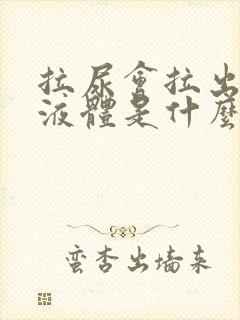 拉尿會拉出
液體是什麼
蠻杏出墙来